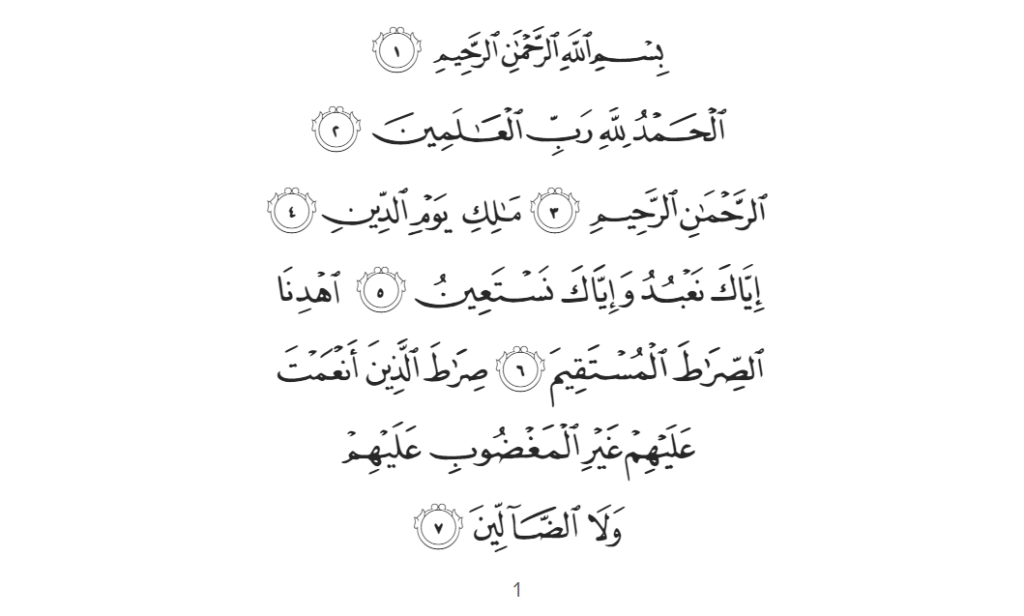 بِسۡمِ ٱللَّهِ ٱلرَّحۡمَٰنِ ٱلرَّحِيمِ ١
ٱلۡحَمۡدُ لِلَّهِ رَبِّ ٱلۡعَٰلَمِينَ ٢
ٱلرَّحۡمَٰنِ ٱلرَّحِيمِ ٣ مَٰلِكِ يَوۡمِ ٱلدِّينِ ٤
إِيَّاكَ نَعۡبُدُ وَإِيَّاكَ نَسۡتَعِينُ ٥ ٱهۡدِنَا
ٱلصِّرَٰطَ ٱلۡمُسۡتَقِيمَ ٦ صِرَٰطَ ٱلَّذِينَ أَنۡعَمۡتَ
عَلَيۡهِمۡ غَيۡرِ ٱلۡمَغۡضُوبِ عَلَيۡهِمۡ
وَلَا ٱلضَّآلِّينَ ٧
1